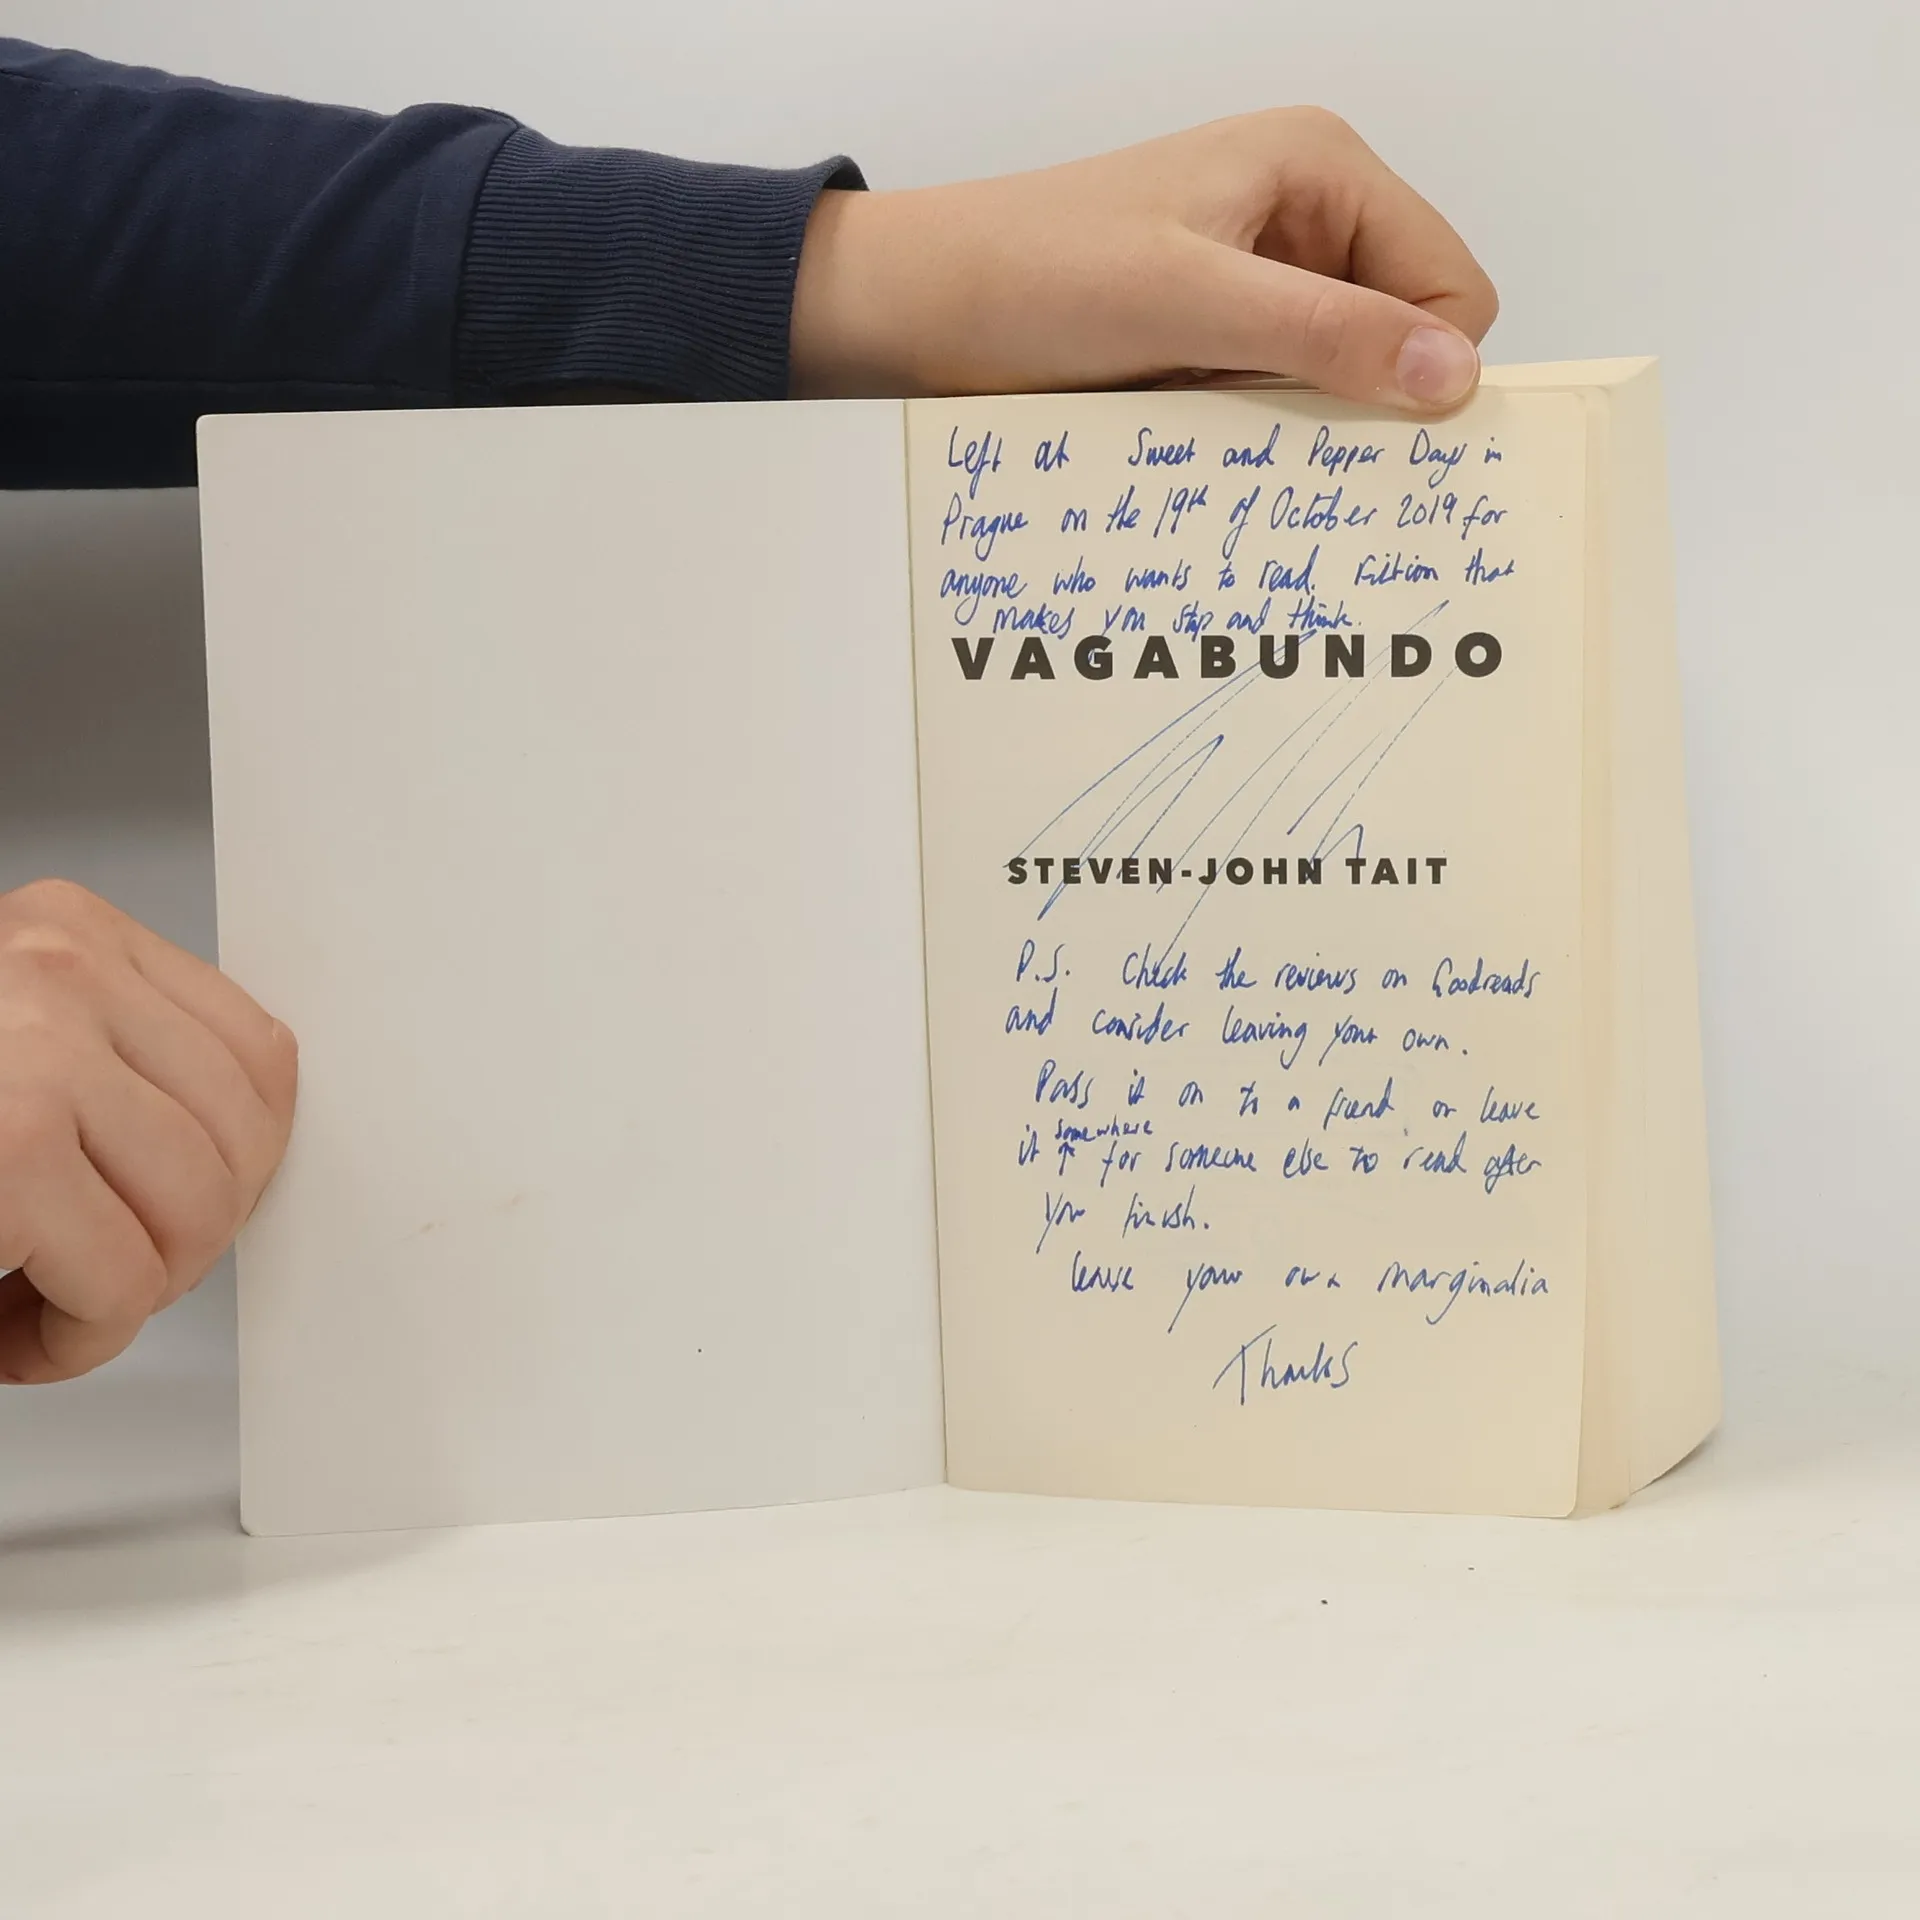 Left at Sweet and Pepper Days in
Prague on the 19th of October 2019 for
anyone who wants to read. Fiction that
makes you stop and think.
VAGABUNDO
STEVEN-JOHN TAIT
P.S. Check the reviews on Goodreads
and consider leaving your own.
Pass it on to a friend or leave
somewhere
it ↑ for someone else to read after
you finish.
leave your own marginalia
Thanks